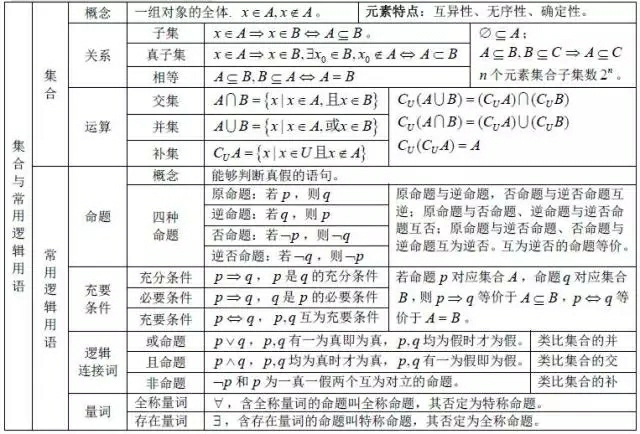 集合与常用逻辑用语
集合
概念
一组对象的全体. x∈A, x∉A。
元素特点：互异性、无序性、确定性。
关系
子集
x∈A⇒x∈B⇔A⊆B。
真子集
x∈A⇒x∈B, ∃x₀∈B, x₀∉A⇔A⊂B
相等
A⊆B, B⊆A⇔A=B
∅⊆A；
A⊆B, B⊆C⇒A⊆C
n个元素集合子集数2ⁿ。
运算
交集
A∩B={x|x∈A,且x∈B}
并集
A∪B={x|x∈A,或x∈B}
补集
C_U A={x|x∈U且x∉A}
C_U(A∪B)=(C_U A)∩(C_U B)
C_U(A∩B)=(C_U A)∪(C_U B)
C_U(C_U A)=A
常用逻辑用语
命题
概念
能够判断真假的语句。
四种
命题
原命题：若p，则q
逆命题：若q，则p
否命题：若¬p，则¬q
逆否命题：若¬q，则¬p
原命题与逆命题，否命题与逆否命题互
逆；原命题与否命题、逆命题与逆否命
题互否；原命题与逆否命题、否命题与
逆命题互为逆否。互为逆否的命题等价。
充要
条件
充分条件
p⇒q，p是q的充分条件
必要条件
p⇒q，q是p的必要条件
充要条件
p⇔q，p,q互为充要条件
若命题p对应集合A，命题q对应集合
B，则p⇒q等价于A⊆B，p⇔q等
价于A=B。
逻辑
连接词
或命题
p∨q，p,q有一为真即为真，p,q均为假时才为假。
类比集合的并
且命题
p∧q，p,q均为真时才为真，p,q有一为假即为假。
类比集合的交
非命题
¬p和p为一真一假两个互为对立的命题。
类比集合的补
量词
全称量词
∀，含全称量词的命题叫全称命题，其否定为特称命题。
存在量词
∃，含存在量词的命题叫特称命题，其否定为全称命题。